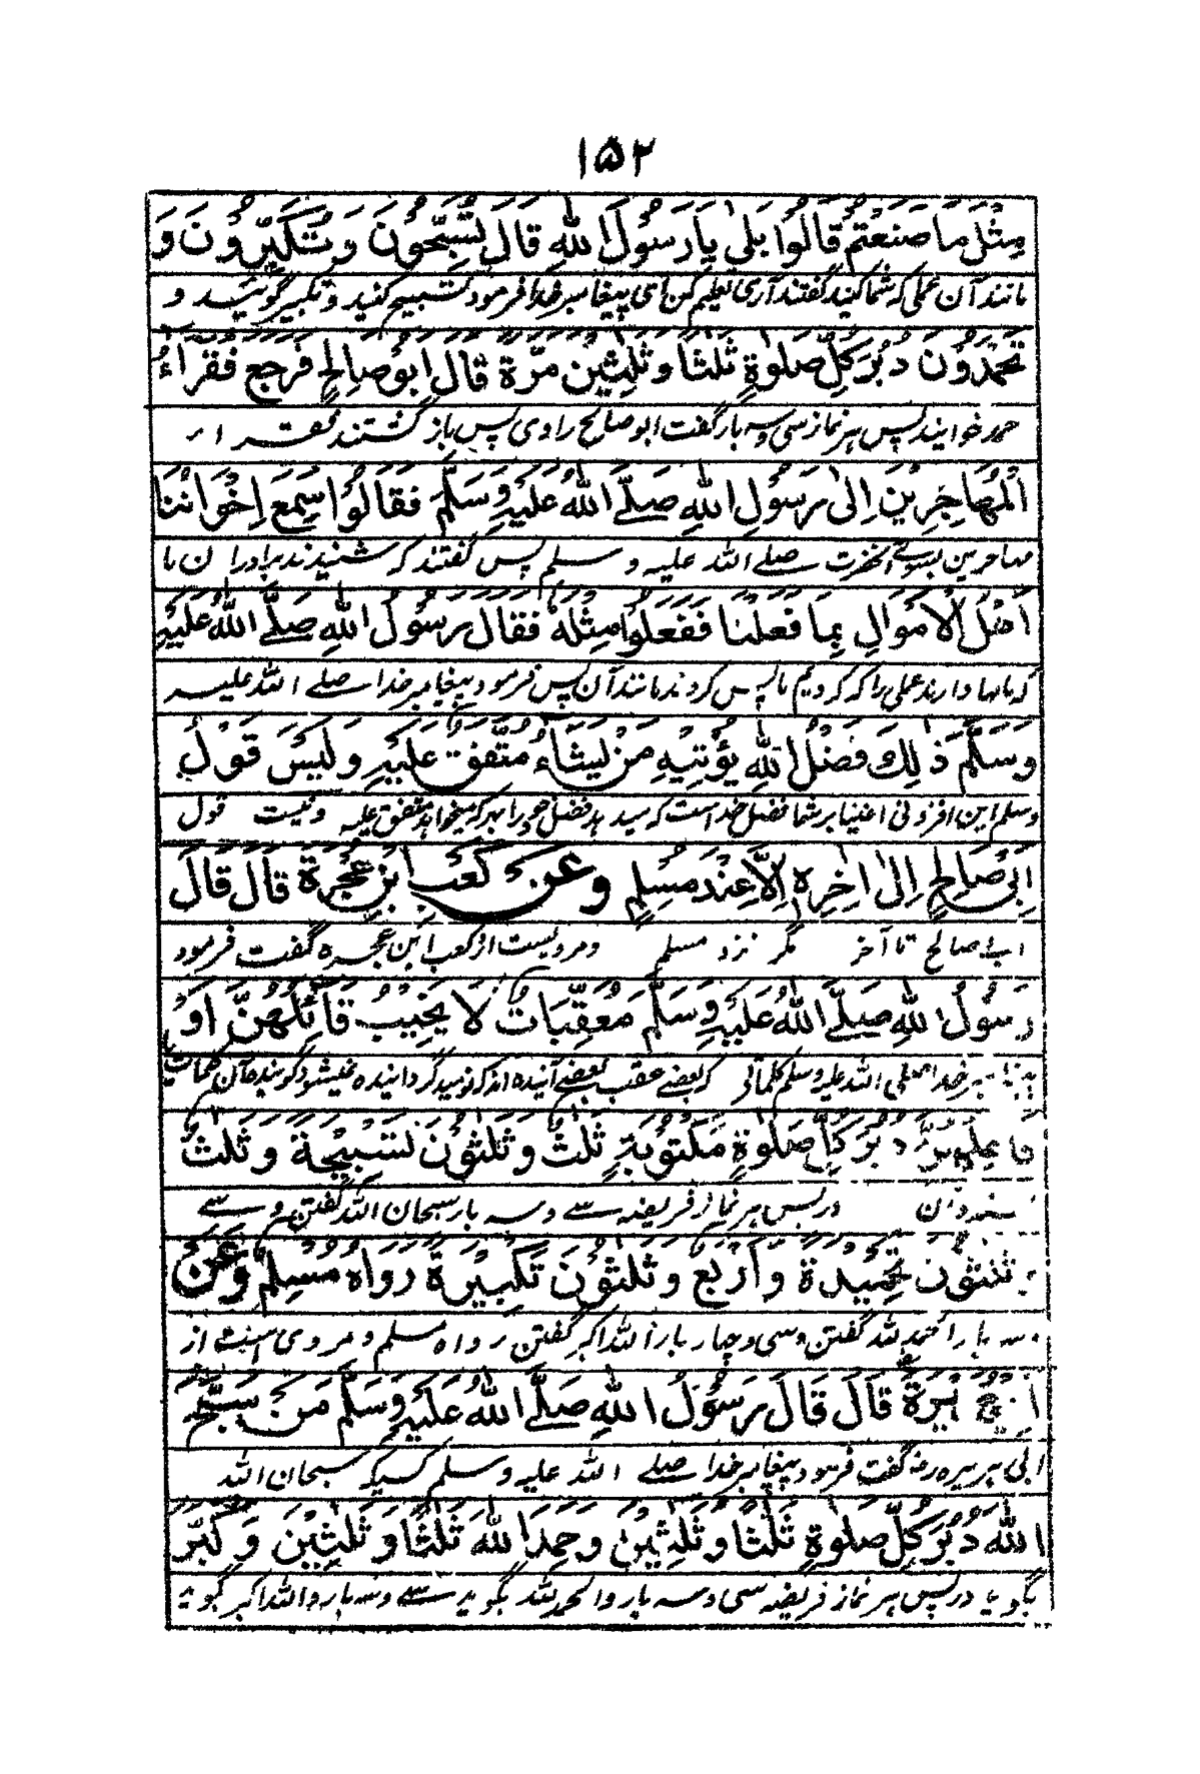 ۱۵۲
مِثْلَ مَا صَنَعْتُمْ قَالُوا بَلىٰ يَا رَسُوْلَ اللهِ قَالَ تُسَبِّحُوْنَ وَ تُكَبِّرُوْنَ وَ
مانند آن عملی که شما کنید گفتند آری تعلیم کن ای پیغامبر خدا فرمود تسبیح کنید و تکبیر گوئید و
تَحْمَدُوْنَ دُبُرَ كُلِّ صَلوٰةٍ ثَلٰثًا وَ ثَلٰثِيْنَ مَرَّةً قَالَ اَبُوْ صَالِحٍ فَرَجَعَ فُقَرَاءُ
حمد خوانید پس هر نماز سی و سه بار گفت ابو صالح راوی پس باز گشتند فقرار
الْمُهَاجِرِيْنَ اِلىٰ رَسُوْلِ اللهِ صَلَّے اللهُ عَلَيْهِ وَسَلَّمَ فَقَالُوْا سَمِعَ اِخْوَانُنَا
مهاجرین بسوئے آنحضرت صلے الله علیه و سلم پس گفتند که شنیدند برادران ما
اَهْلُ الْاَمْوَالِ بِمَا فَعَلْنَا فَفَعَلُوْا مِثْلَهٗ فَقَالَ رَسُوْلُ اللهِ صَلَّے اللهُ عَلَيْهِ
که مالها دارند عملی را که کردیم ما پس کردند مانند آن پس فرمود پیغامبر خدا صلے الله علیه
وَسَلَّمَ ذٰلِكَ فَضْلُ اللهِ يُؤْتِيْهِ مَنْ يَّشَاءُ مُتَّفَقٌ عَلَيْهِ وَلَيْسَ قَوْلُ
وسلم این افزونی اغنیا بر شما فضل خداست که میدهد فضل خود را بهر که میخواهد متفق علیه ونیست قول
اَبِيْ صَالِحٍ اِلىٰ اٰخِرِهٖ اِلَّا عِنْدَ مُسْلِمٍ وعَنْ كَعْبِ ابْنِ عُجْرَةَ قَالَ قَالَ
ابی صالح تا آخر مگر نزد مسلم ومرویست از کعب ابن عجره گفت فرمود
رَسُوْلُ اللهِ صَلَّے اللهُ عَلَيْهِ وَسَلَّمَ مُعَقِّبَاتٌ لَا يَخِيْبُ قَائِلُهُنَّ اَوْ
خدا صلی الله علیه وسلم کلماتی که بعضے عقب بعضے آینده اند که نومید گردانیده نمیشود گوینده آن کلمات یا
فَاعِلُهُنَّ دُبُرَ كُلِّ صَلوٰةٍ مَكْتُوْبَةٍ ثَلٰثٌ وَ ثَلٰثُوْنَ تَسْبِيْحَةً وَ ثَلٰثٌ
درپس هر نماز فریضه سے و سه بار سبحان الله گفتن و سے
وَ ثَلٰثُوْنَ تَحْمِيْدَةً وَ اَرْبَعٌ وَ ثَلٰثُوْنَ تَكْبِيْرَةً رَوَاهُ مُسْلِمٌ وَعَنْ
و سه بار الحمدلله گفتن و سی و چهار بار الله اکبر گفتن رواه مسلم و مروی است از
اَبِيْ هُرَيْرَةَ قَالَ قَالَ رَسُوْلُ اللهِ صَلَّے اللهُ عَلَيْهِ وَسَلَّمَ مَنْ سَبَّحَ
ابی هریره رض گفت فرمود پیغامبر خدا صلے الله علیه وسلم کسیکه سبحان الله
اللهَ دُبُرَ كُلِّ صَلوٰةٍ ثَلٰثًا وَ ثَلٰثِيْنَ وَحَمِدَ اللهَ ثَلٰثًا وَ ثَلٰثِيْنَ وَ كَبَّرَ
بگوید درپس هر نماز فریضه سی و سه بار والحمدلله بگوید سے و سه بار والله اکبر گوید